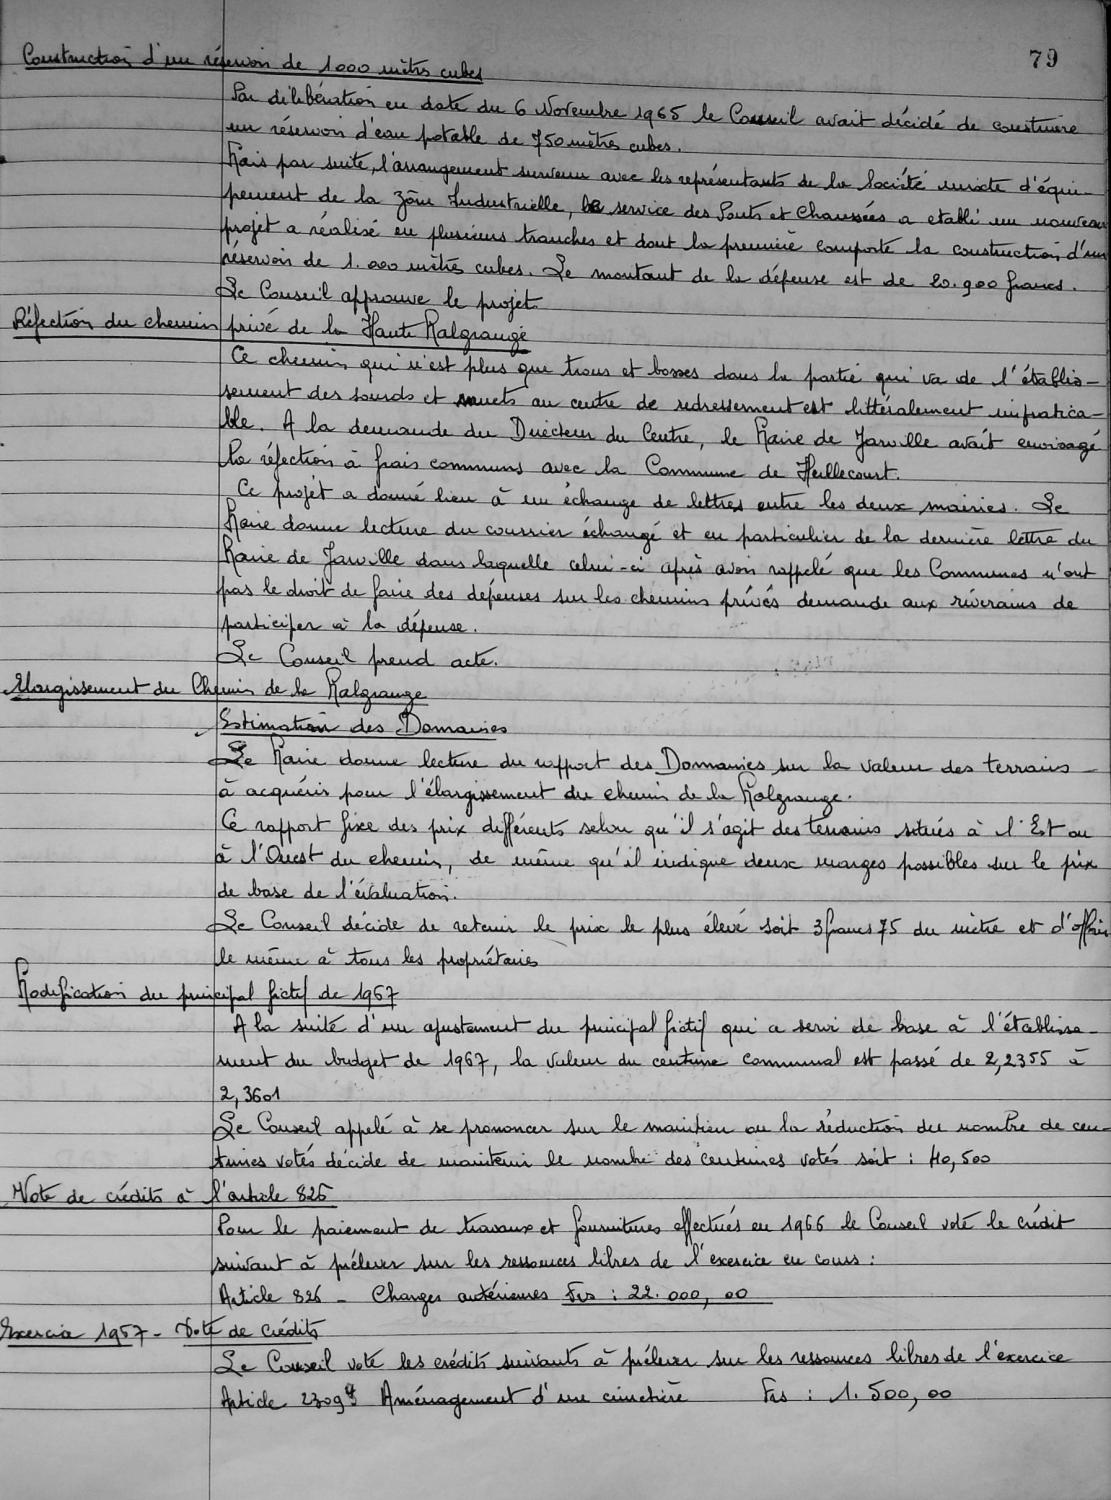 79
Construction d'un réservoir de 1000 mètres cubes
Par délibération en date du 6 Novembre 1965 le Conseil avait décidé de construire
un réservoir d'eau potable de 750 mètres cubes.
Mais par suite, l'arrangement survenu avec les représentants de la Société mixte d'équi-
pement de la Zône Industrielle, le service des Ponts et Chaussées a etabli un nouveau
projet a réalisé en plusieurs tranches et dont la première comporte la construction d'un
réservoir de 1.000 mètres cubes. Le montant de la dépense est de 20.900 francs.
Le Conseil approuve le projet
Réfection du chemin privé de la Haute Malgrange
Ce chemin qui n'est plus que trous et bosses dans la partie qui va de l'établis-
sement des sourds et muets au centre de redressement est littéralement impratica-
ble. A la demande du Directeur du Centre, le Maire de Jarville avait envisagé
la réfection à frais communs avec la Commune de Heillecourt.
Ce projet a donné lieu à un échange de lettres entre les deux mairies. Le
Maire donne lecture du courrier échangé et en particulier de la dernière lettre du
Maire de Jarville dans laquelle celui-ci après avoir rappelé que les Communes n'ont
pas le droit de faire des dépenses sur les chemins privés demande aux riverains de
participer à la dépense.
Le Conseil prend acte.
Elargissement du Chemin de la Malgrange
Estimation des Domaines
Le Maire donne lecture du rapport des Domaines sur la valeur des terrains
à acquérir pour l'élargissement du chemin de la Malgrange.
Ce rapport fixe des prix différents selon qu'il s'agit des terrains situés à l'Est ou
à l'Ouest du chemin, de même qu'il indique deux marges possibles sur le prix
de base de l'évaluation.
Le Conseil décide de retenir le prix le plus élevé soit 3 francs 75 du mètre et d'offrir
le même à tous les propriétaires
Modification du principal fictif de 1967
A la suite d'un ajustement du principal fictif qui a servi de base à l'établisse-
ment du budget de 1967, la valeur du centime communal est passé de 2,2355 à
2,3601
Le Conseil appelé à se prononcer sur le maintien ou la réduction du nombre de cen-
times votés décide de maintenir le nombre des centimes votés soit : 40,500
Vote de crédits à l'article 826
Pour le paiement de travaux et fournitures effectués en 1966 le Conseil vote le crédit
suivant à prélever sur les ressources libres de l'exercice en cours :
Article 826 - Charges antérieures Frs : 22.000,00
Exercice 1967 - Vote de crédits
Le Conseil vote les crédits suivants à prélever sur les ressources libres de l'exercice
Article 2309 Aménagement d'un cimetière Frs : 1.500,00